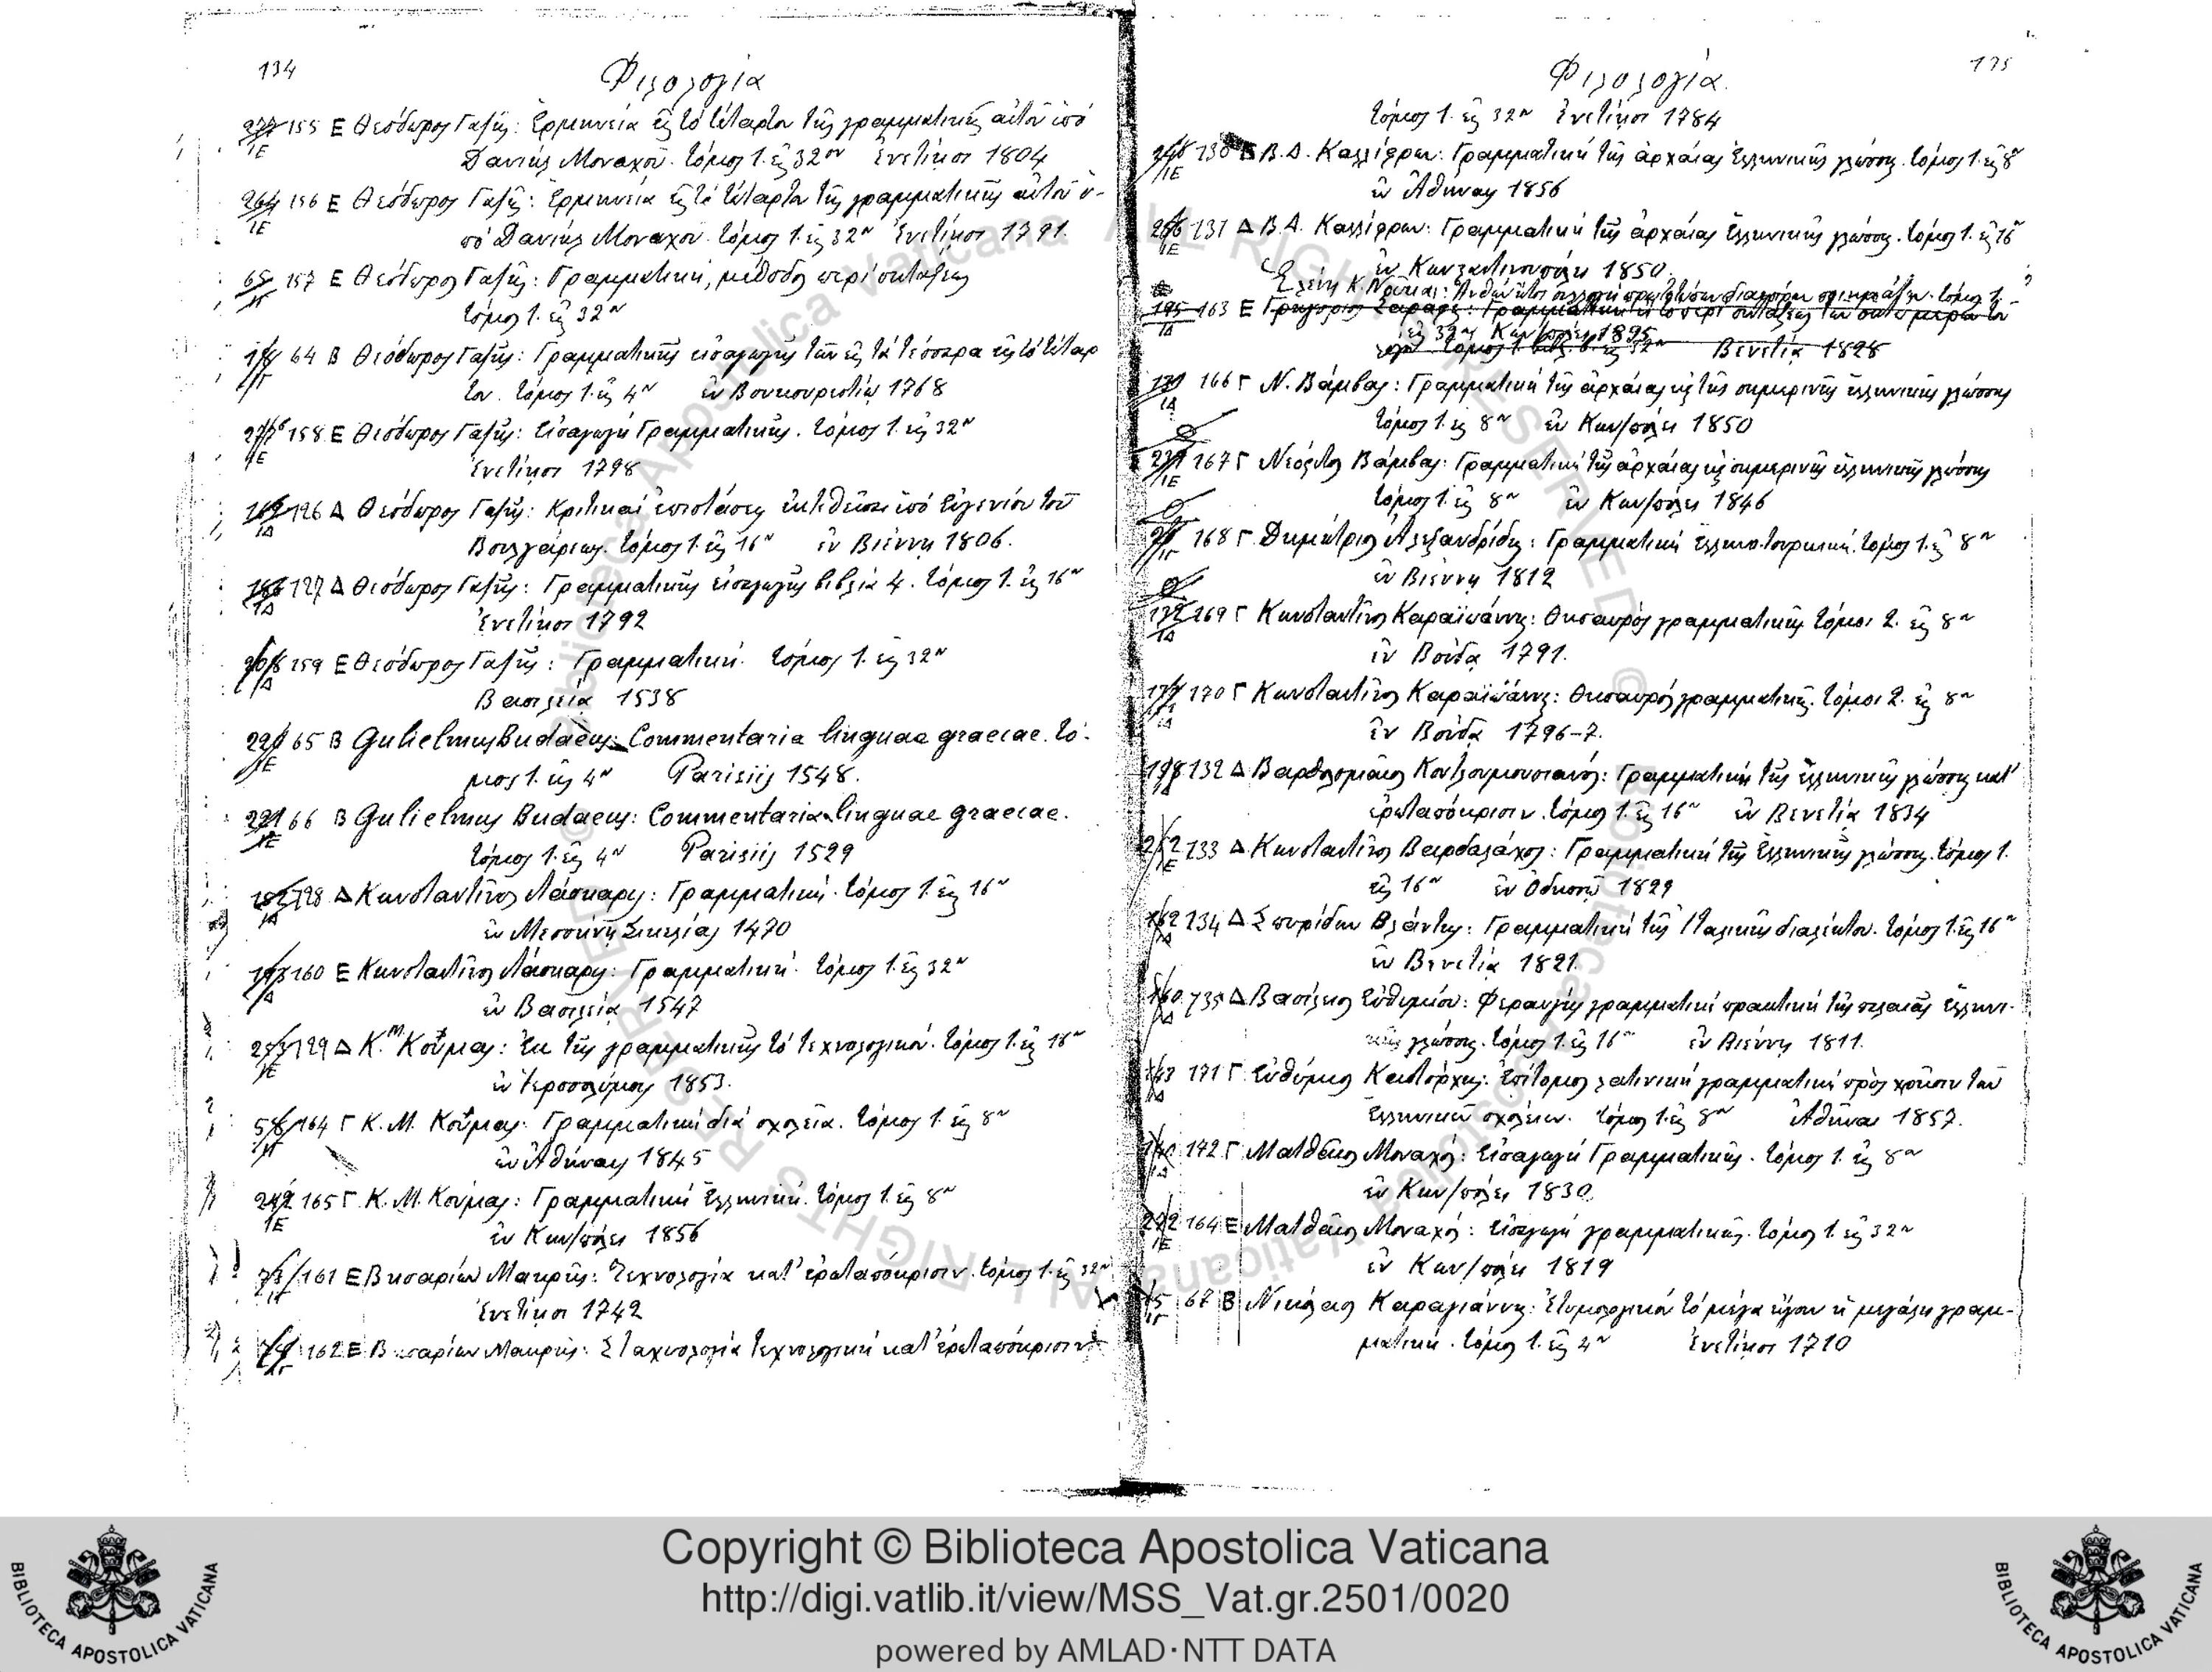 134
Φιλολογία
155 Ε Θεόδωρος Γαζῆς: Ἑρμηνεία εἰς τὸ τέταρτον τῆς γραμματικῆς αὐτοῦ ὑπό
Δανιὴλ Μοναχοῦ. τόμος 1. εἰς 32ον Ἐνετίῃσι 1804
264 156 Ε Θεόδωρος Γαζῆς: Ἑρμηνεία εἰς τὸ τέταρτον τῆς γραμματικῆς αὐτοῦ ὑ-
πό Δανιὴλ Μοναχοῦ. τόμος 1. εἰς 32ον Ἐνετίῃσι 1791.
65 157 Ε Θεόδωρος Γαζῆς: Γραμματική, μέθοδος περὶ συντάξεως
τόμος 1. εἰς 32ον
64 Β Θεόδωρος Γαζῆς: Γραμματικῆς εἰσαγωγῆς τῶν εἰς τὰ τέσσερα εἰς τὸ τέταρ
τον. τόμος 1. εἰς 4ον ἐν Βουκουρεστίῳ 1768
158 Ε Θεόδωρος Γαζῆς: Εἰσαγωγὴ Γραμματικῆς. τόμος 1. εἰς 32ον
Ἐνετίῃσι 1798
126 Δ Θεόδωρος Γαζῆς: Κριτικαὶ ἐπιστάσεις ἐκτεθεῖσαι ὑπό Εὐγενίου τοῦ
Βουλγάρεως. τόμος 1. εἰς 16ον ἐν Βιέννῃ 1806.
127 Δ Θεόδωρος Γαζῆς: Γραμματικῆς εἰσαγωγῆς βιβλία 4. τόμος 1. εἰς 16ον
Ἐνετίῃσι 1792
159 Ε Θεόδωρος Γαζῆς: Γραμματική. τόμος 1. εἰς 32ον
Βασιλείᾳ 1538
220 65 Β Gulielmus Budaeus: Commentaria linguae graecae. τό-
μος 1. εἰς 4ον Parisiis 1548.
221 66 Β Gulielmus Budaeus: Commentaria linguae graecae.
τόμος 1. εἰς 4ον Parisiis 1529
128 Δ Κωνσταντῖνος Λάσκαρης: Γραμματική. τόμος 1. εἰς 16ον
ἐν Μεσσήνῃ Σικελίας 1470
160 Ε Κωνσταντῖνος Λάσκαρης: Γραμματική. τόμος 1. εἰς 32ον
ἐν Βασιλείᾳ 1547
129 Δ Κ. Μ. Κούμας: Ἐκ τῆς γραμματικῆς τὸ τεχνολογικόν. τόμος 1. εἰς 16ον
ἐν Ἱεροσολύμοις 1853.
58 164 Γ Κ. Μ. Κούμας: Γραμματικὴ διὰ σχολεῖα. τόμος 1. εἰς 8ον
ἐν Ἀθήναις 1845
242 165 Γ Κ. Μ. Κούμας: Γραμματικὴ Ἑλληνική. τόμος 1. εἰς 8ον
ἐν Κων/πόλει 1856
161 Ε Βησαρίων Μακρῆς: Τεχνολογία κατ' ἐρωταπόκρισιν. τόμος 1. εἰς 32ον
Ἐνετίῃσι 1742
162 Ε Βησαρίων Μακρῆς: Σταχυολογία τεχνολογικὴ κατ' ἐρωταπόκρισιν
135
Φιλολογία.
τόμος 1. εἰς 32ον Ἐνετίῃσι 1784
130 Β. Δ. Καλλίφρων: Γραμματικὴ τῆς ἀρχαίας Ἑλληνικῆς γλώσσης. τόμος 1. εἰς 8ον
ἐν Ἀθήναις 1856
131 Δ Β. Δ. Καλλίφρων: Γραμματικὴ τῆς ἀρχαίας Ἑλληνικῆς γλώσσης. τόμος 1. εἰς 16ον
ἐν Κωνσταντινουπόλει 1850.
195 163 Ε
εἰς 32ον Κων/πόλει 1895
Βενετίᾳ 1828
166 Γ Ν. Βάμβας: Γραμματικὴ τῆς ἀρχαίας καὶ τῆς σημερινῆς ἑλληνικῆς γλώσσης
τόμος 1. εἰς 8ον ἐν Κων/πόλει 1850
167 Γ Νεόφυτος Βάμβας: Γραμματικὴ τῆς ἀρχαίας καὶ σημερινῆς ἑλληνικῆς γλώσσης
τόμος 1. εἰς 8ον ἐν Κων/πόλει 1846
168 Γ Δημήτριος Ἀλεξανδρίδης: Γραμματικὴ Ἑλληνοτουρκική. τόμος 1. εἰς 8ον
ἐν Βιέννῃ 1812
169 Γ Κωνσταντῖνος Καραϊωάννης: Θησαυρὸς γραμματικῆς. τόμοι 2. εἰς 8ον
ἐν Βούδᾳ 1791.
170 Γ Κωνσταντῖνος Καραϊωάννης: Θησαυρὸς γραμματικῆς. τόμοι 2. εἰς 8ον
ἐν Βούδᾳ 1796-7.
198 132 Δ Βαρθολομαῖος Κουτλουμουσιανός: Γραμματικὴ τῆς ἑλληνικῆς γλώσσης κατ'
ἐρωταπόκρισιν. τόμος 1. εἰς 16ον ἐν Βενετίᾳ 1834
133 Δ Κωνσταντῖνος Βαρδαλάχος: Γραμματικὴ τῆς Ἑλληνικῆς γλώσσης. τόμος 1.
εἰς 16ον ἐν Ὀδησσῷ 1829
134 Δ Σπυρίδων Βλάντης: Γραμματικὴ τῆς Ἰταλικῆς διαλέκτου. τόμος 1. εἰς 16ον
ἐν Βενετίᾳ 1821.
135 Δ Βασίλειος Εὐθυμίου: Φεραυγὴς γραμματικὴ πρακτικὴ τῆς παλαιᾶς Ἑλληνι-
κῆς γλώσσης. τόμος 1. εἰς 16ον ἐν Βιέννῃ 1811.
171 Γ Εὐθύμιος Καστόρχης: Ἐπίτομος λατινικὴ γραμματικὴ πρὸς χρῆσιν τῶν
Ἑλληνικῶν σχολείων. τόμος 1. εἰς 8ον Ἀθῆναι 1857.
172 Γ Ματθαῖος Μοναχός: Εἰσαγωγὴ Γραμματικῆς. τόμος 1. εἰς 8ον
ἐν Κων/πόλει 1830.
164 Ε Ματθαῖος Μοναχός: Εἰσαγωγὴ γραμματικῆς. τόμος 1. εἰς 32ον
ἐν Κων/πόλει 1819
67 Β Νικόλαος Καραγιάννης: Ἐτυμολογικὸν τὸ μέγα ἤγουν ἡ μεγάλη γραμ-
ματική. τόμος 1. εἰς 4ον Ἐνετίῃσι 1710
Copyright © Biblioteca Apostolica Vaticana
http://digi.vatlib.it/view/MSS_Vat.gr.2501/0020
powered by AMLAD·NTT DATA
BIBLIOTECA APOSTOLICA VATICANA
BIBLIOTECA APOSTOLICA VATICANA